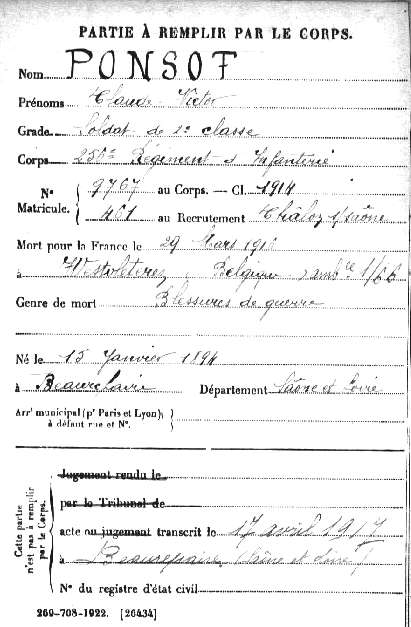 PARTIE À REMPLIR PAR LE CORPS.
Nom PONSOT
Prénoms Claude Victor
Grade Soldat de 2e classe
Corps 256e Régiment d'Infanterie
Nº Matricule. { 9767 au Corps. — Cl. 1914
461 au Recrutement Châlon s/Saône
Mort pour la France le 29 Mars 1916
à Belgique ambce 1/66
Genre de mort Blessures de guerre
Né le 15 Janvier 1894
à Département Saône et Loire
Arrt municipal (pr Paris et Lyon),
à défaut rue et Nº.
Cette partie n'est pas à remplir par le Corps.
Jugement rendu le
par le Tribunal de
acte ou jugement transcrit le 17 avril 1917
à Beaurepaire (Saône et Loire)
Nº du registre d'état civil
269-708-1922. [26434]